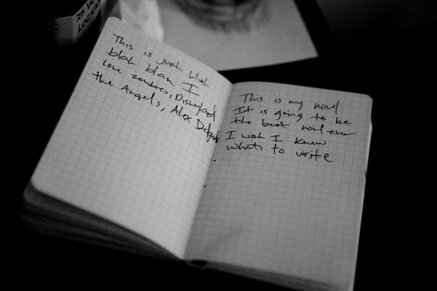 This is just blah
blah blah I
love zombies, Disneyland
the Angels, Alex
This is my novel
It is going to be
the best novel ever
I wish I knew
whats to write